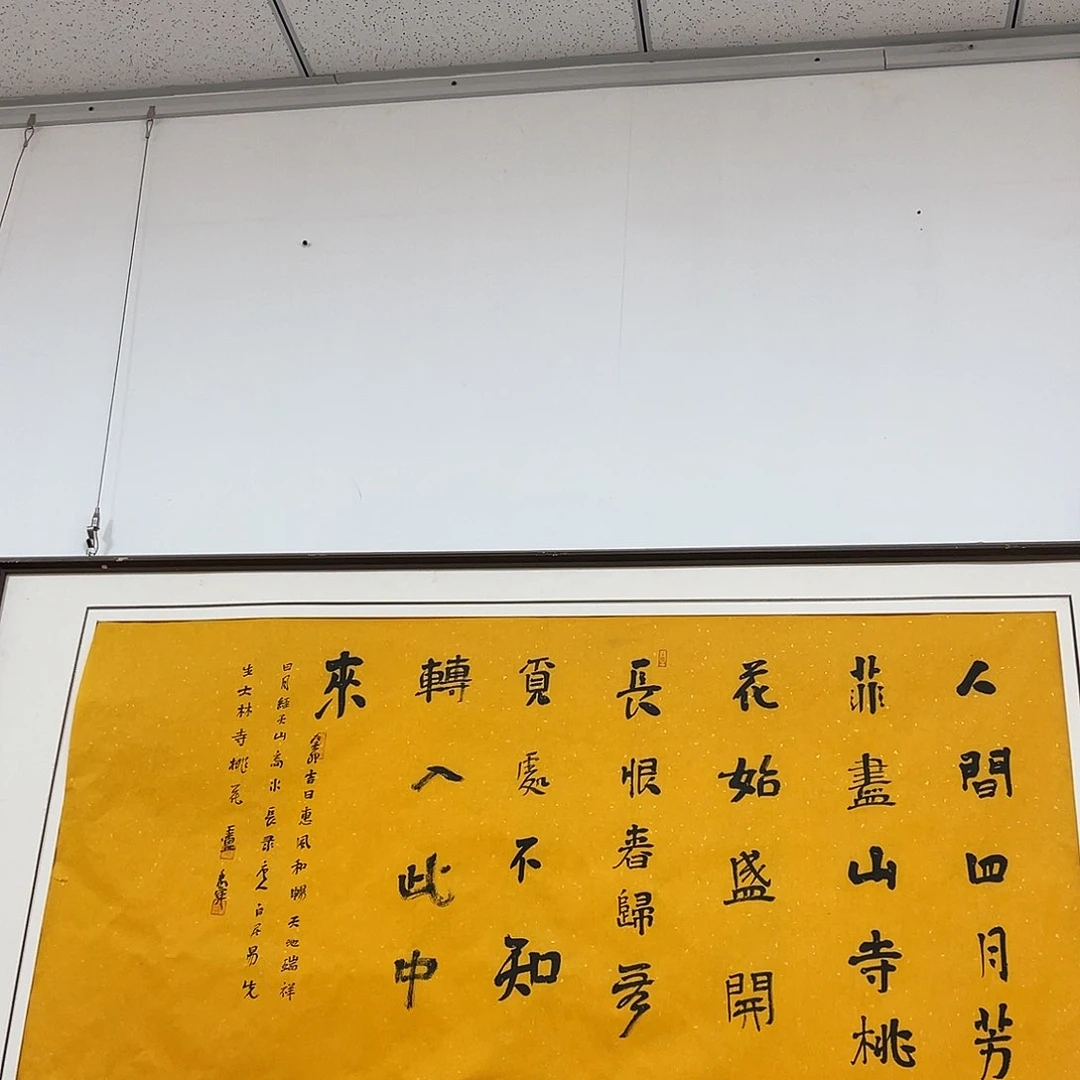 人間四月芳
菲盡山寺桃
花始盛開
長恨春歸無
覓處不知
轉入此中
來
癸卯吉日惠風和暢天地瑞祥
日月經天山高水長录唐人白居易先
生大林寺桃花